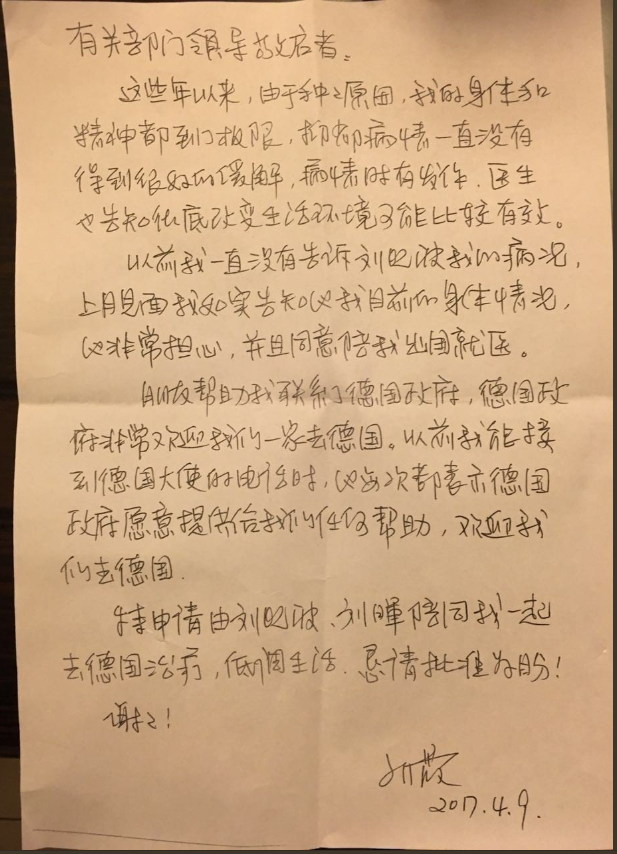 有关部门领导敬启者:
这些年以来,由于种种原因,我的身体和
精神都到了极限,抑郁病情一直没有
得到很好的缓解,病情时有发作.医生
也告知彻底改变生活环境可能比较有效。
以前我一直没有告诉刘晓波我的病况,
上月见面我如实告知他我目前的身体情况,
他非常担心,并且同意陪我出国就医。
朋友帮助我联系了德国政府,德国政
府非常欢迎我们一家去德国。以前我能接
到德国大使的电话时,他每次都表示德国
政府愿意提供给我们任何帮助,欢迎我
们去德国.
特申请由刘晓波、刘暉陪同我一起
去德国治疗,低调生活.恳请批准为盼!
谢谢!
刘霞
2017.4.9.